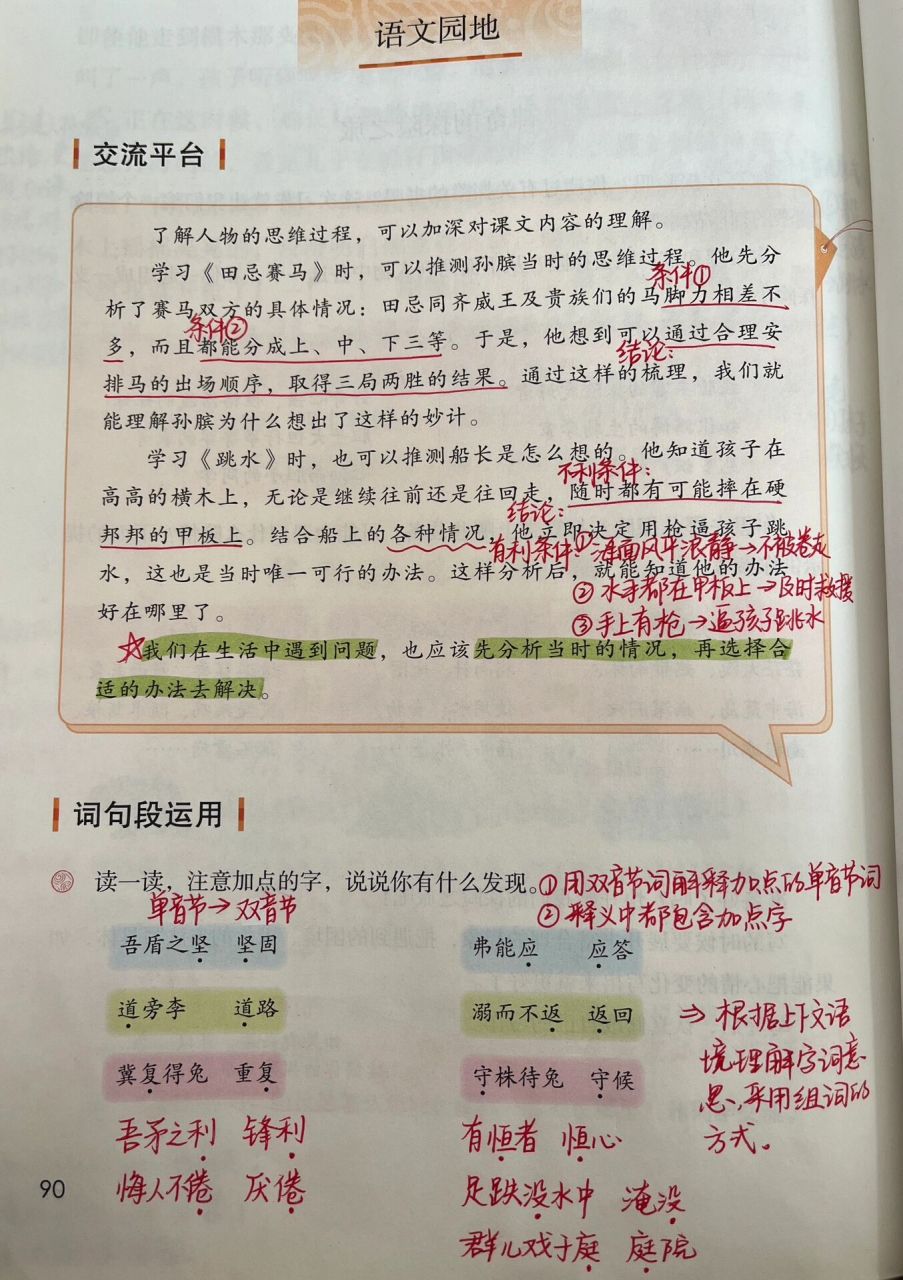 语文园地
交流平台
了解人物的思维过程，可以加深对课文内容的理解。
学习《田忌赛马》时，可以推测孙膑当时的思维过程。他先分
条件①
析了赛马双方的具体情况：田忌同齐威王及贵族们的马脚力相差不
条件②
多，而且都能分成上、中、下三等。于是，他想到可以通过合理安
结论：
排马的出场顺序，取得三局两胜的结果。通过这样的梳理，我们就
能理解孙膑为什么想出了这样的妙计。
学习《跳水》时，也可以推测船长是怎么想的。他知道孩子在
不利条件：
高高的横木上，无论是继续往前还是往回走，随时都有可能摔在硬
结论：
邦邦的甲板上。结合船上的各种情况，他立即决定用枪逼孩子跳
有利条件①海面风平浪静→不被卷走
水，这也是当时唯一可行的办法。这样分析后，就能知道他的办法
②水手都在甲板上→及时救援
好在哪里了。
③手上有枪→逼孩子跳水
☆我们在生活中遇到问题，也应该先分析当时的情况，再选择合
适的办法去解决。
词句段运用
读一读，注意加点的字，说说你有什么发现。①用双音节词解释加点的单音节词
单音节→双音节 ②释义中都包含加点字
吾盾之坚 坚固 弗能应 应答
道旁李 道路 溺而不返 返回
冀复得兔 重复 守株待兔 守候
⇒根据上下文语
境理解字词意
思、采用组词的
方式。
吾矛之利 锋利 有恒者 恒心
悔人不倦 厌倦 足跌没水中 淹没
群儿戏于庭 庭院
90